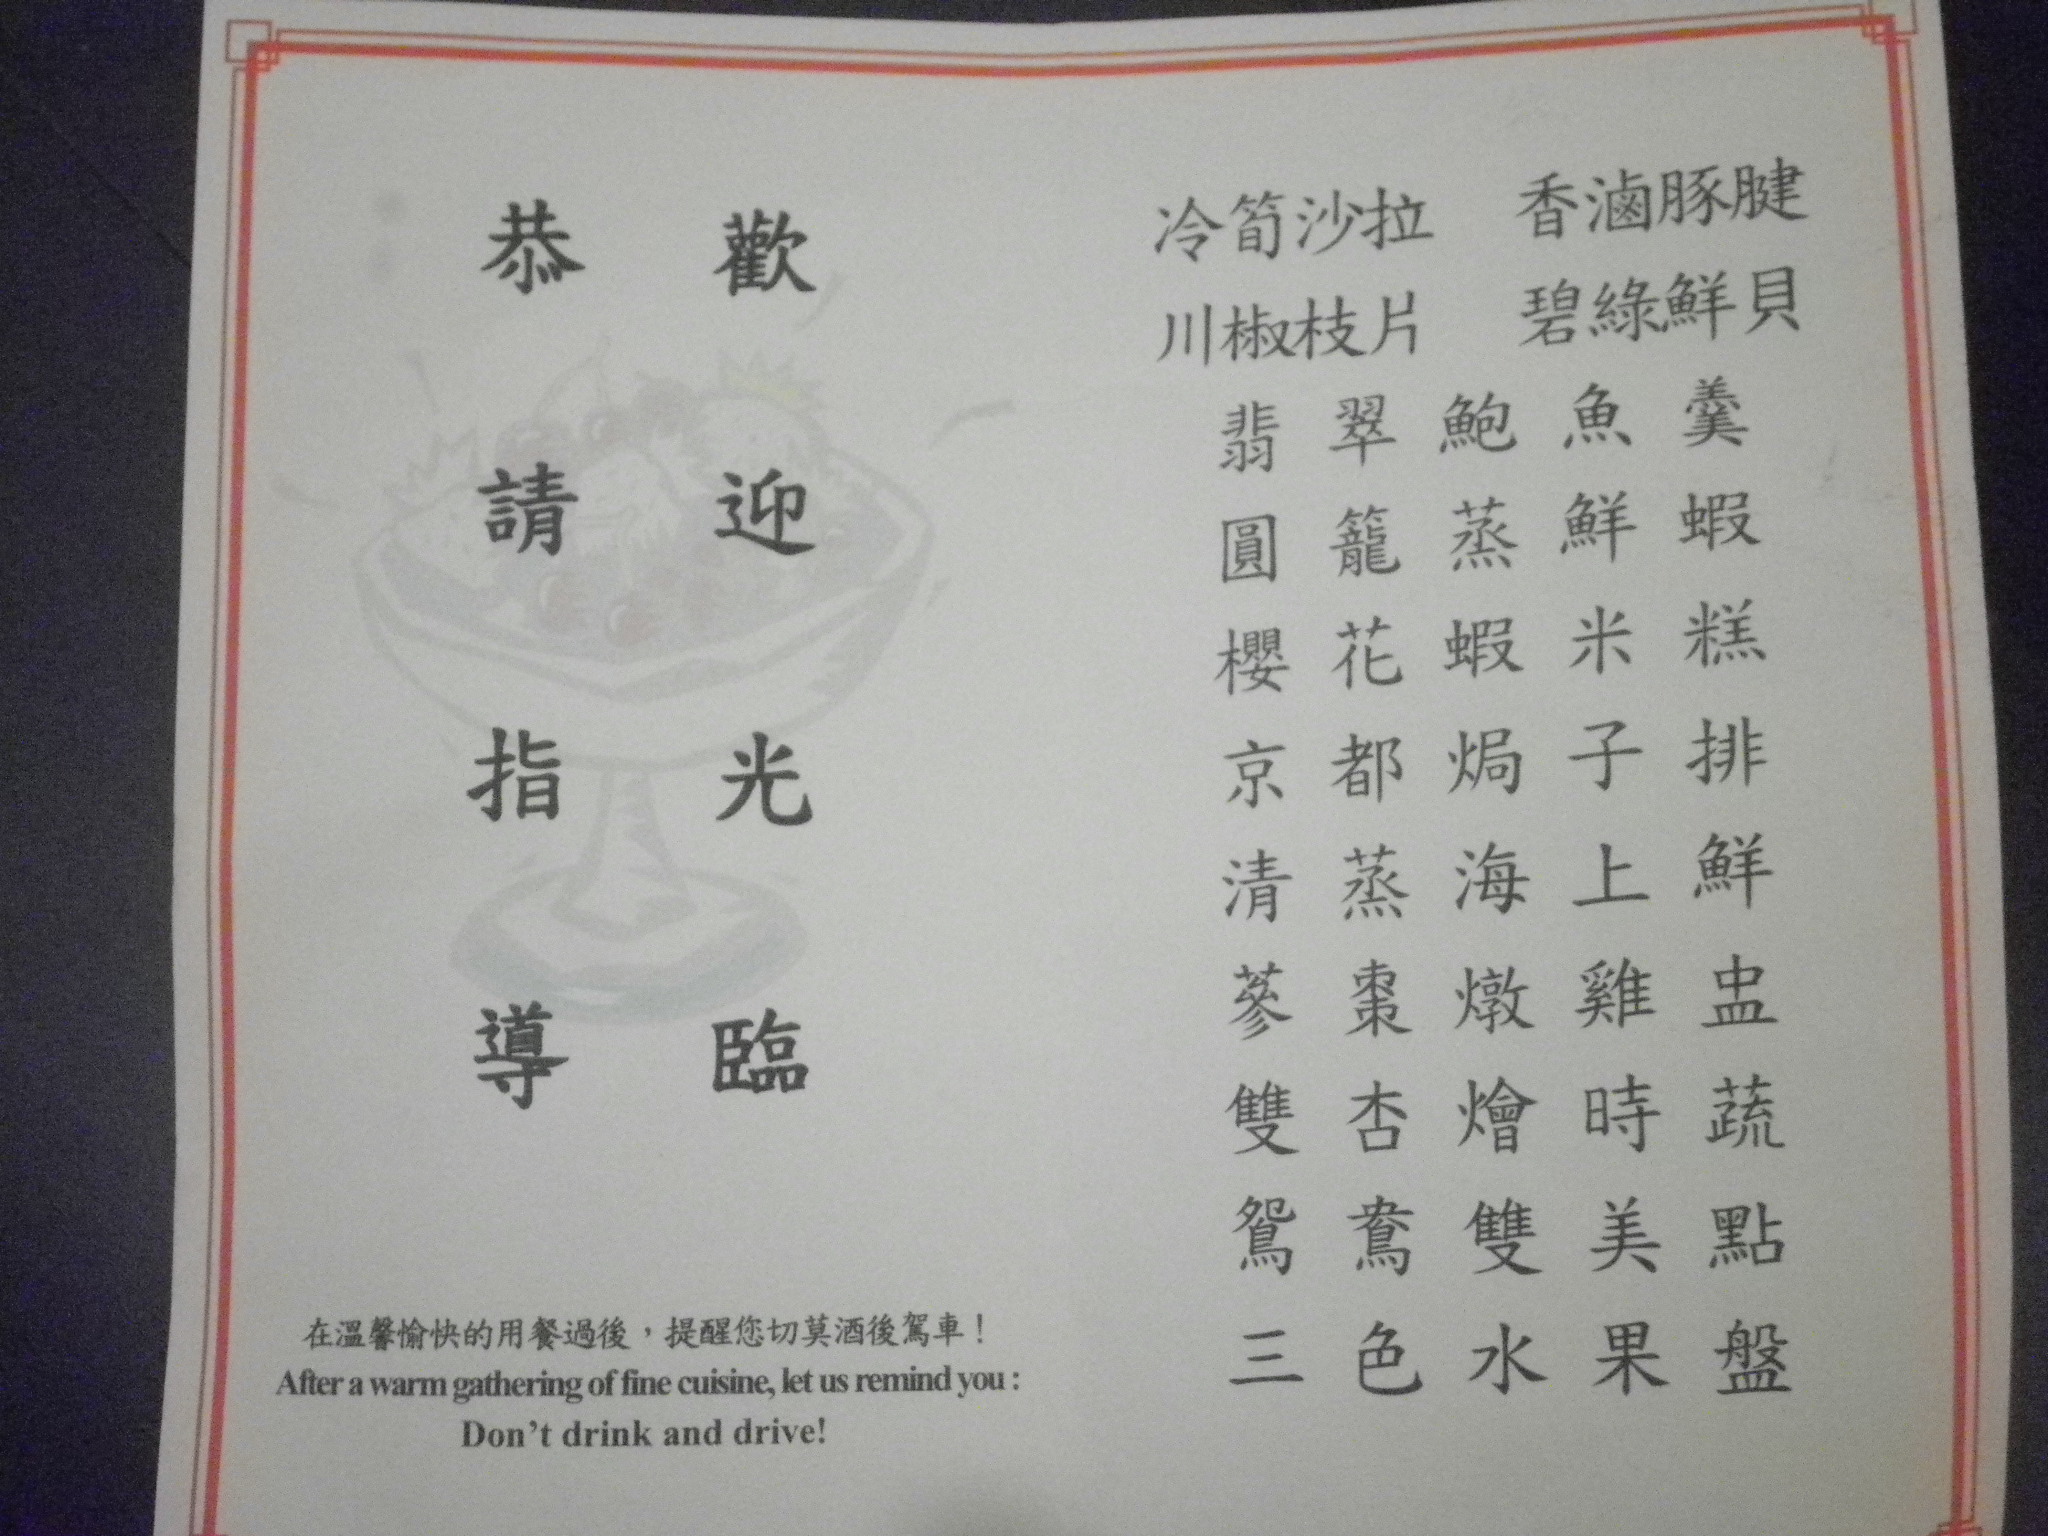 歡迎光臨
恭請指導
在溫馨愉快的用餐過後，提醒您切莫酒後駕車！
After a warm gathering of fine cuisine, let us remind you :
Don't drink and drive!
冷筍沙拉 香滷豚腱
川椒枝片 碧綠鮮貝
翡翠鮑魚羹
圓籠蒸鮮蝦
櫻花蝦米糕
京都焗子排
清蒸海上鮮
蔘棗燉雞盅
雙杏燴時蔬
鴛鴦雙美點
三色水果盤